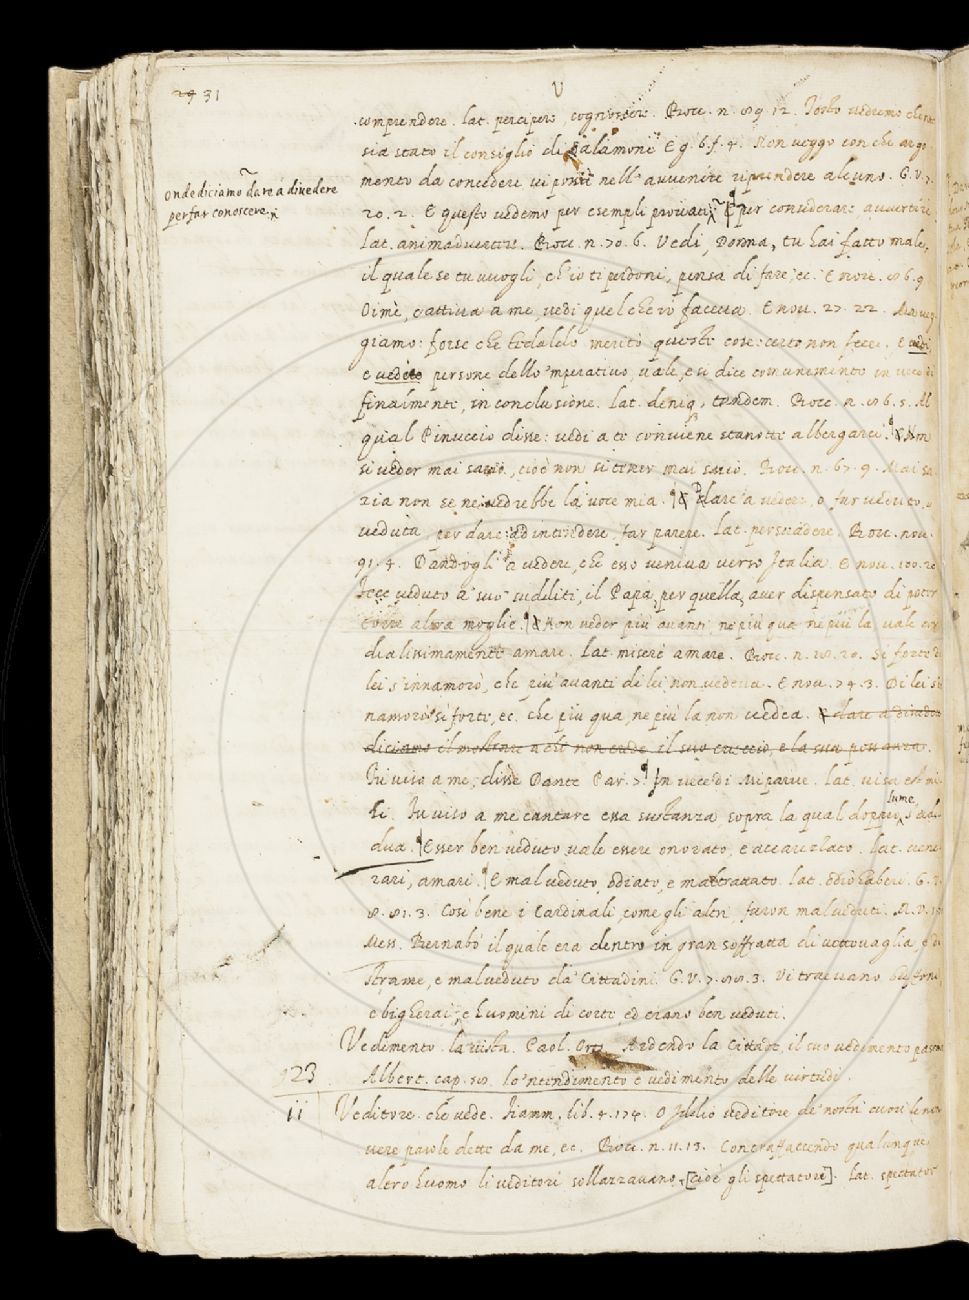 29 31
V
comprendere. lat. percipere, cognoscere. Bocc. n. 89. 12. Tosto vedremo chente
sia stato il consiglio di Salamone. E g. 6. f. 4. Non veggo con che argo
mento da concedere vi possi nell'avvenire riprendere alcuno. G. V. 7.
onde diciamo dare a divedere
per far conoscere.
20. 2. E questo vedemo per esempli provati. Per considerare avvertire,
lat. animadvertere. Bocc. n. 70. 6. Vedi, Donna, tu hai fatto male,
il quale se tu vuogli, ch'io ti perdoni, pensa di fare, ec. E nov. 86. 9
Oimè, cattiva a me, vedi quel che io faceva. E nov. 27. 22. Ma veg
giamo: forse che Tedaldo meritò queste cose: certo non fece. E vedi,
e vedete persone dello 'mperativo, vale, e si dice comunemente in vece di
finalmente, in conclusione. lat. deniq, tandem. Bocc. n. 86. 5. Al
qual Pinuccio disse: vedi a te conviene stanotte albergarci. Non
si veder mai sazio, cioè non si tener mai sazio. Bocc. n. 67. 9. Mai sa
zia non se ne vedrebbe la voce mia. Dare a vedere, o far veduto, o
veduta, per dare ad intendere, far parere. lat. persuadere. Bocc. nov.
91. 4. Dandogli a vedere, che esso veniva verso Italia. E nov. 100. 20
Fece veduto a' suo' sudditi, il Papa, per quella, aver dispensato di poter
torre altra moglie. Non veder più avanti, ne più qua ne più la vale cor
dialissimamente amare. lat. misere amare. Bocc. n. 28. 20. Si forte di
lei s'innamorò, che più avanti di lei non vedeva. E nov. 74. 3. Di lei s'in
namorò si forte, ec. che più qua, ne più la non vedea. dare a divedere
diciamo il mostrare a chi non crede il suo cruccio, e la sua possanza.
Fu viso a me, disse Dante Par. 7. In vece di Mi parve. lat. visa est mi
hi. Fu viso a me cantare essa sustanza, sopra la qual doppio lume s'ad
dua. Esser ben veduto vale essere onorato, e accarezzato. lat. vene
rari, amari. E malveduto, odiato, e maltrattato. lat. odio haberi. G. V.
8. 81. 3. Così bene i Cardinali, come gli altri furon malveduti. M. V. 10
Mess. Bernabò il quale era dentro in gran soffratta di vettovaglia, e di
strame, e malveduto da' Cittadini. G. V. 7. 88. 3. Vi traevano buffoni,
e bigherai, e huomini di corte, ed erano ben veduti.
Vedimento. la vista. Paol. Oros. Ardendo la Cittade, il suo vedimento pasceva
923
Albert. cap. 58. lo 'ntendimento e vedimento delle virtudi.
ii
Veditore. che vede. Fiamm. lib. 4. 174. O Iddio veditore de' nostri cuori le non
vere parole dette da me, ec. Bocc. n. 11. 13. Contraffaccendo qualunque
altro huomo li veditori sollazzavano, [cioè gli spettatori]. lat. spectator